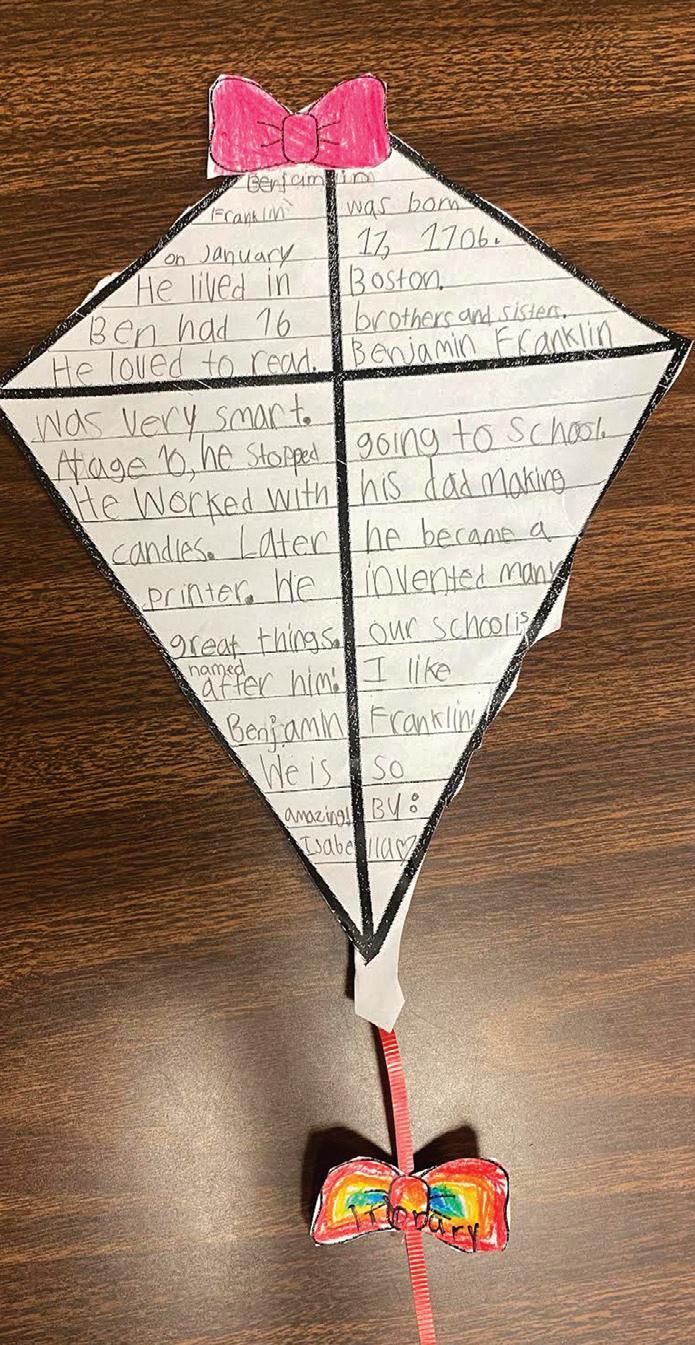 Benjamin
Franklin was born
on January 17, 1706.
He lived in Boston.
Ben had 16 brothers and sisters.
He loved to read. Benjamin Franklin
was very smart.
At age 10, he stopped going to school.
He worked with his dad making
candles. Later he became a
printer. He invented many
great things. our school is
named
after him! I like
Benjamin Franklin!
We is so
amazing! BY:
Isabella♡
library